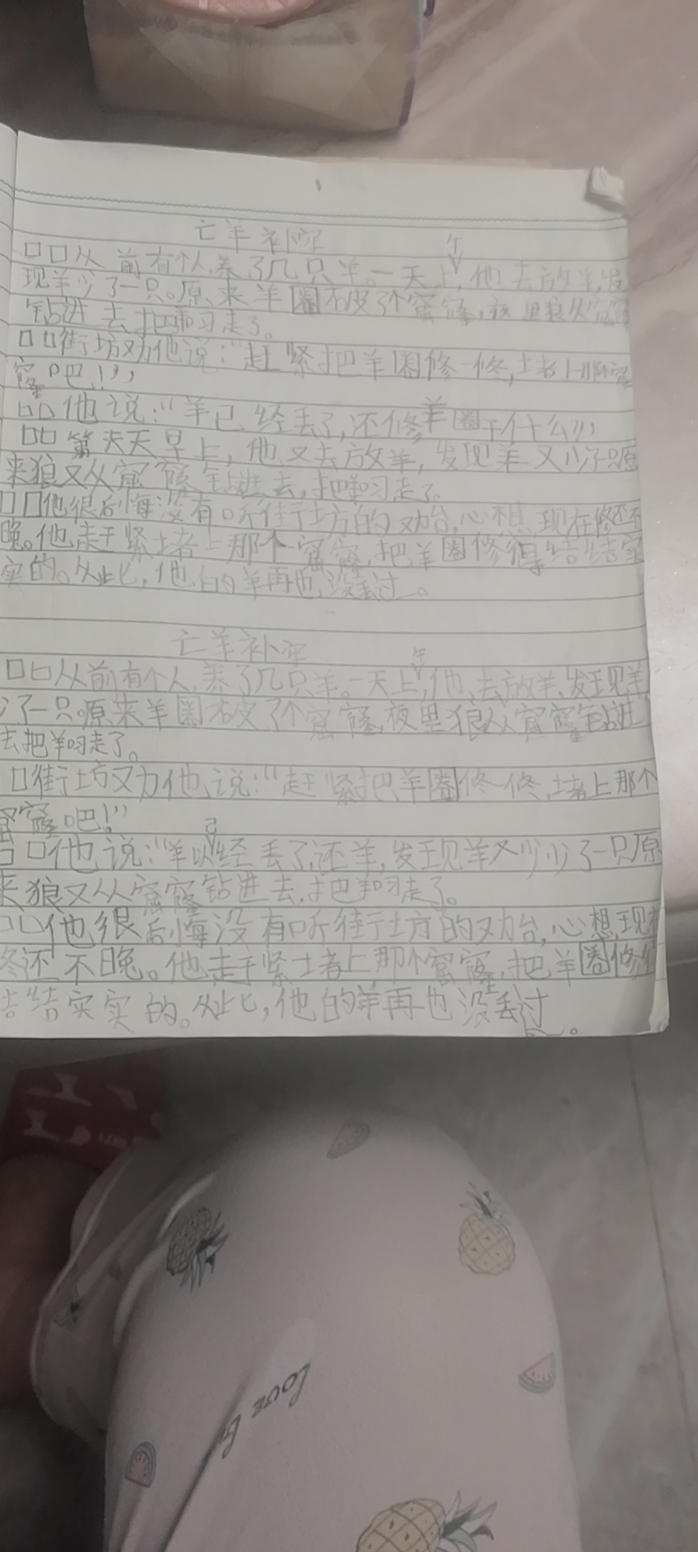 亡羊补牢
口口从前有个人,养了几只羊。一天上午,他去放羊,发
现羊少了一只。原来羊圈破了个窟窿,夜里狼从窟窿
钻进去把羊叼走了。
口口街坊劝他说:“赶紧把羊圈修一修,堵上那
窿吧!”
口口他说:“羊已经丢了,还修羊圈干什么!”
口口第天早上,他又去放羊,发现羊又少了一只原
来狼又从窟窿钻进去,把羊叼走了。
口口他很后悔没有听街坊的劝告,心想,现在修还不
晚。他赶紧堵上那个窟窿,把羊圈修得结结实
实的。从此,他的羊再也没丢过。
亡羊补牢
口口从前有个人,养了几只羊。一天上午,他去放羊,发现羊
少了一只。原来羊圈破了个窟窿,夜里狼从窟窿钻进
去把羊叼走了。
口街坊又力他说:“赶紧把羊圈修一修,堵上那个
窟窿吧!”
口口他说:“羊以已经丢了,还羊,发现羊又少少了一只原
来狼又从窟窿钻进去,把羊叼走了。
口口他很后悔没有听街坊的劝告,心想现在
修还不晚。他赶紧堵上那个窟窿,把羊圈修
结结实实的。从此,他的羊再也没丢过。
Love